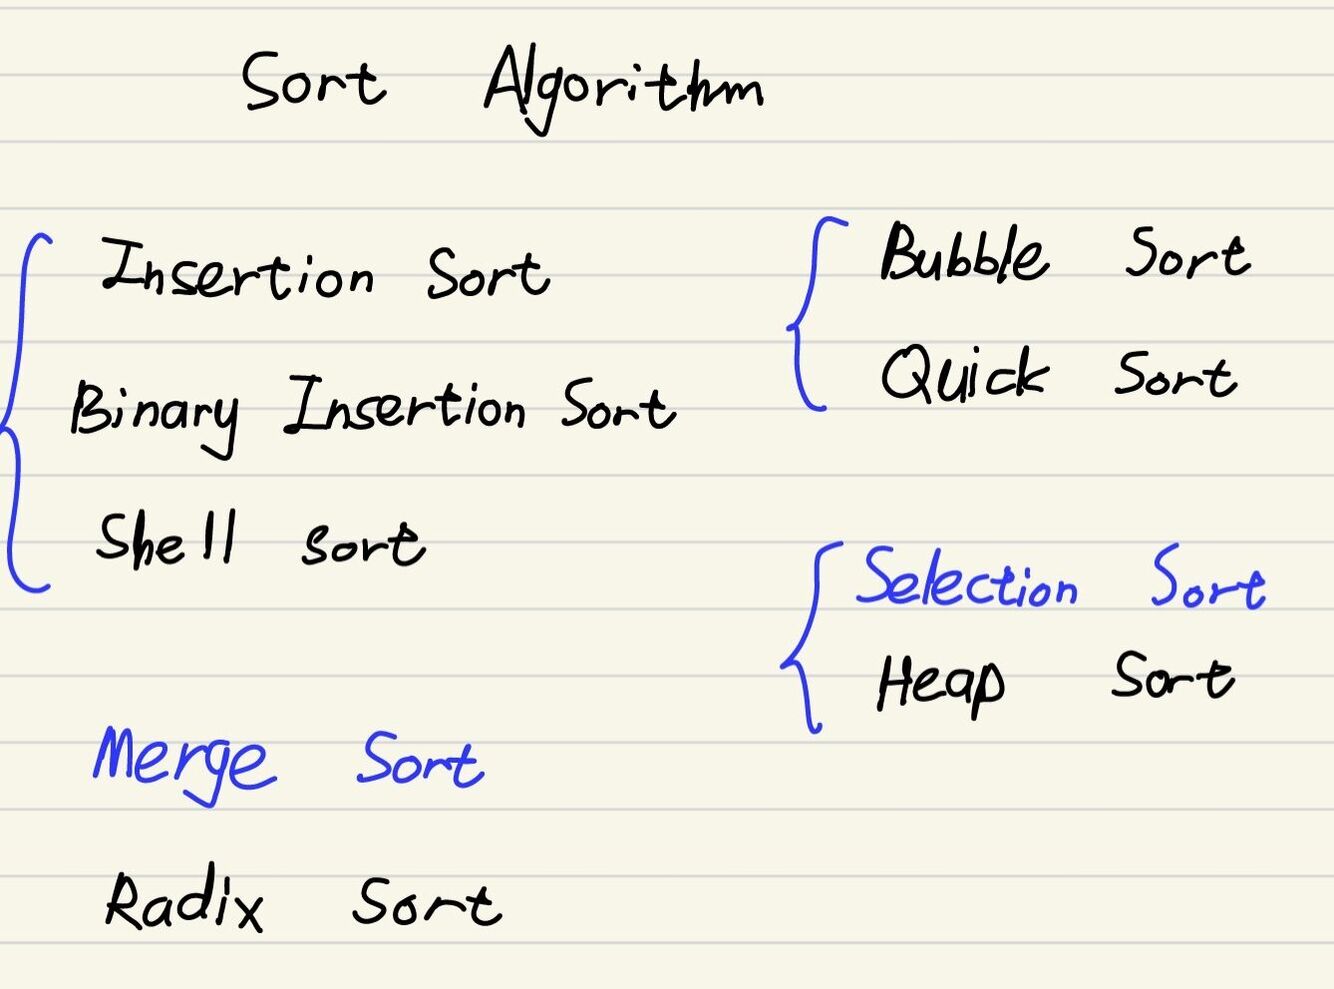 Sort Algorithm
Insertion Sort
Binary Insertion Sort
Shell sort
Merge Sort
Radix Sort
Bubble Sort
Quick Sort
Selection Sort
Heap Sort